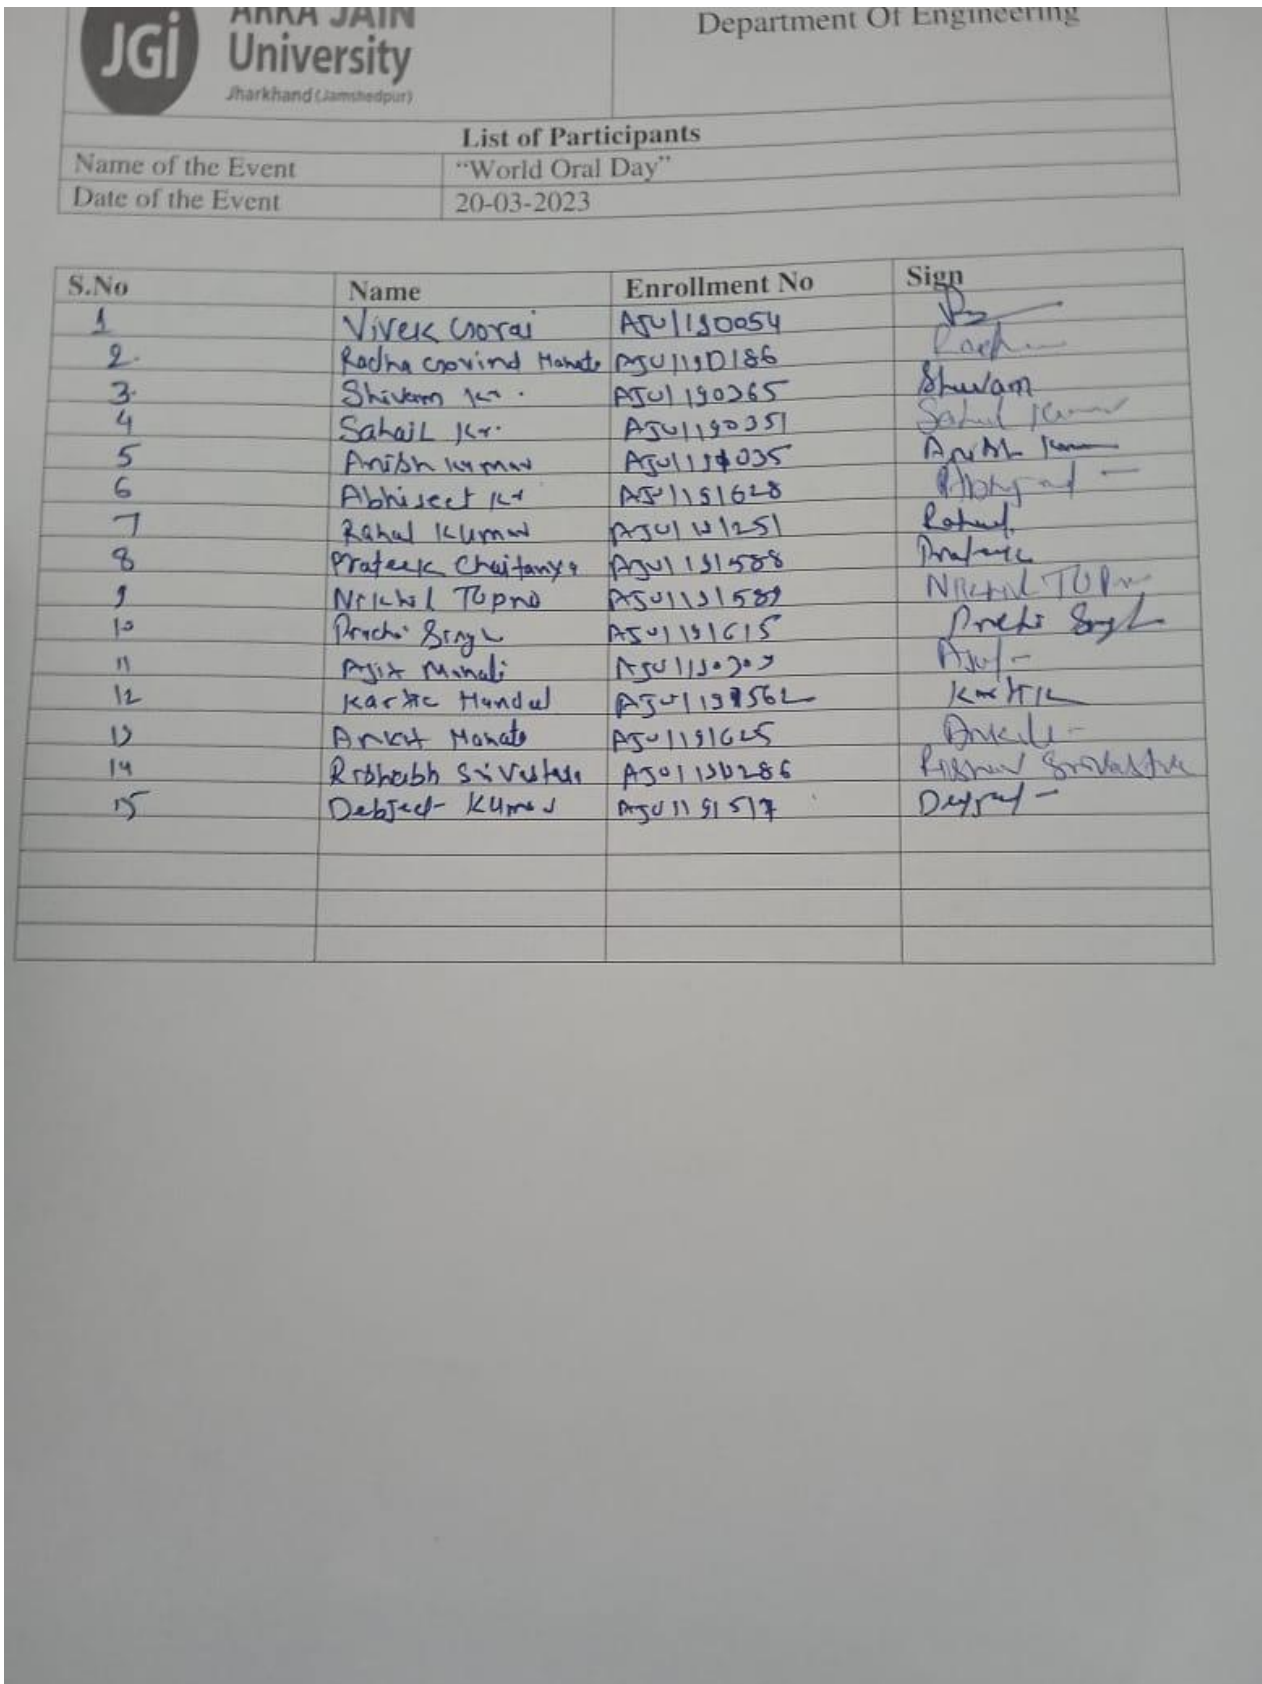 ARKA JAIN
JGi University
Jharkhand (Jamshedpur)
Department Of Engineering
List of Participants
Name of the Event "World Oral Day"
Date of the Event 20-03-2023
S.No Name Enrollment No Sign
1 Vivek Gorai AJU/190054
2. Radha Govind Mahato AJU/190186
3. Shivam Kr. AJU/190265 Shuvam
4 Sahail Kr. AJU/190351
5 Anish Kumar Anish
6 Abhijeet Kr AJU/191628
7 Rahul Kumar AJU/191251 Rahul
8 Prateek Chaitanya AJU/191588 Prateek
9 Nikhil Topno AJU/191589 Nikhil Topno
10 Prachi Singh AJU/191615 Prachi Singh
11 Ajit
12 Kartic Mandal Kartik
13 Ankit Mahato AJU/191625
14 Rishabh Srivastava Srivastava
15 Debjeet Kumar AJU/191517